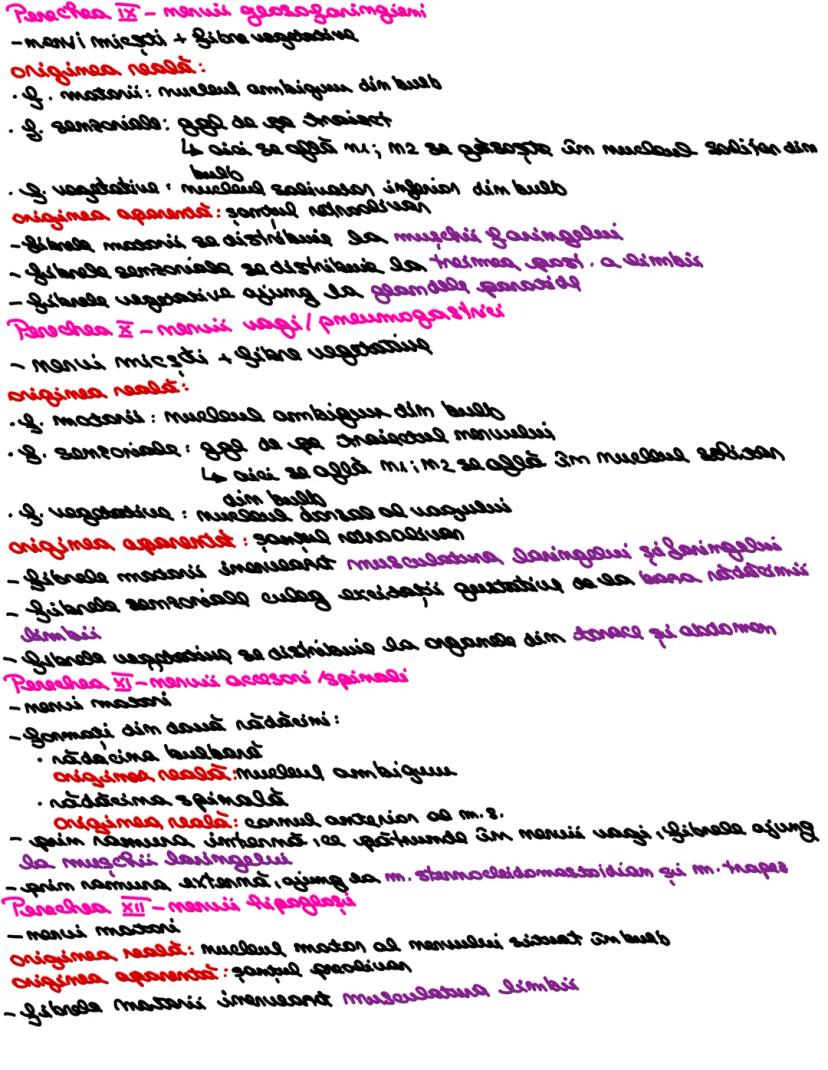 Perechea IX - nervii glosofaringieni
- nervi micști + fibre vegetative
originea reală:
· f. motorii: nucleul ambiguu din bulb
· f. senzoriale: ggl de pe traiect
↳ aici se află n1; n2 se găsește în nucleul solitar din
bulb
· f. vegetative: nucleul salivator inferior din bulb
originea aparentă: șanțul retroolivar
- fibrele motorii se distribuie la mușchii faringelui
- fibrele senzoriale se distribuie la treimea post. a limbii
- fibrele vegetative ajung la glandele parotide
Perechea X - nervii vagi/pneumogastrici
- nervi micști + fibre vegetative
originea reală:
· f. motorii: nucleul ambiguu din bulb
· f. senzoriale: ggl de pe traiectul nervului
↳ aici se află n1; n2 se află în nucleul solitar
din bulb
· f. vegetative: nucleul dorsal al vagului
originea aparentă: șanțul retroolivar
- fibrele motorii inervează musculatura laringelui și faringelui
- fibrele senzoriale culeg excitații gustative de la baza rădăcinii
limbii
- fibrele vegetative se distribuie la organele din torace și abdomen
Perechea XI - nervii accesori/spinali
- nervi motori
- formați din două rădăcini:
· rădăcina bulbară
originea reală: nucleul ambiguu
· rădăcina spinală
originea reală: cornul anterior al m.s.
- prin ramura internă, ce pătrunde în nervii vagi, fibrele ajung
la mușchii laringelui
- prin ramura externă, ajung la m. sternocleidomastoidian și m. trapez
Perechea XII - nervii hipogloși
- nervi motori
originea reală: nucleul motor al nervului situat în bulb
originea aparentă: șanțul preolivar
- fibrele motorii inervează musculatura limbii